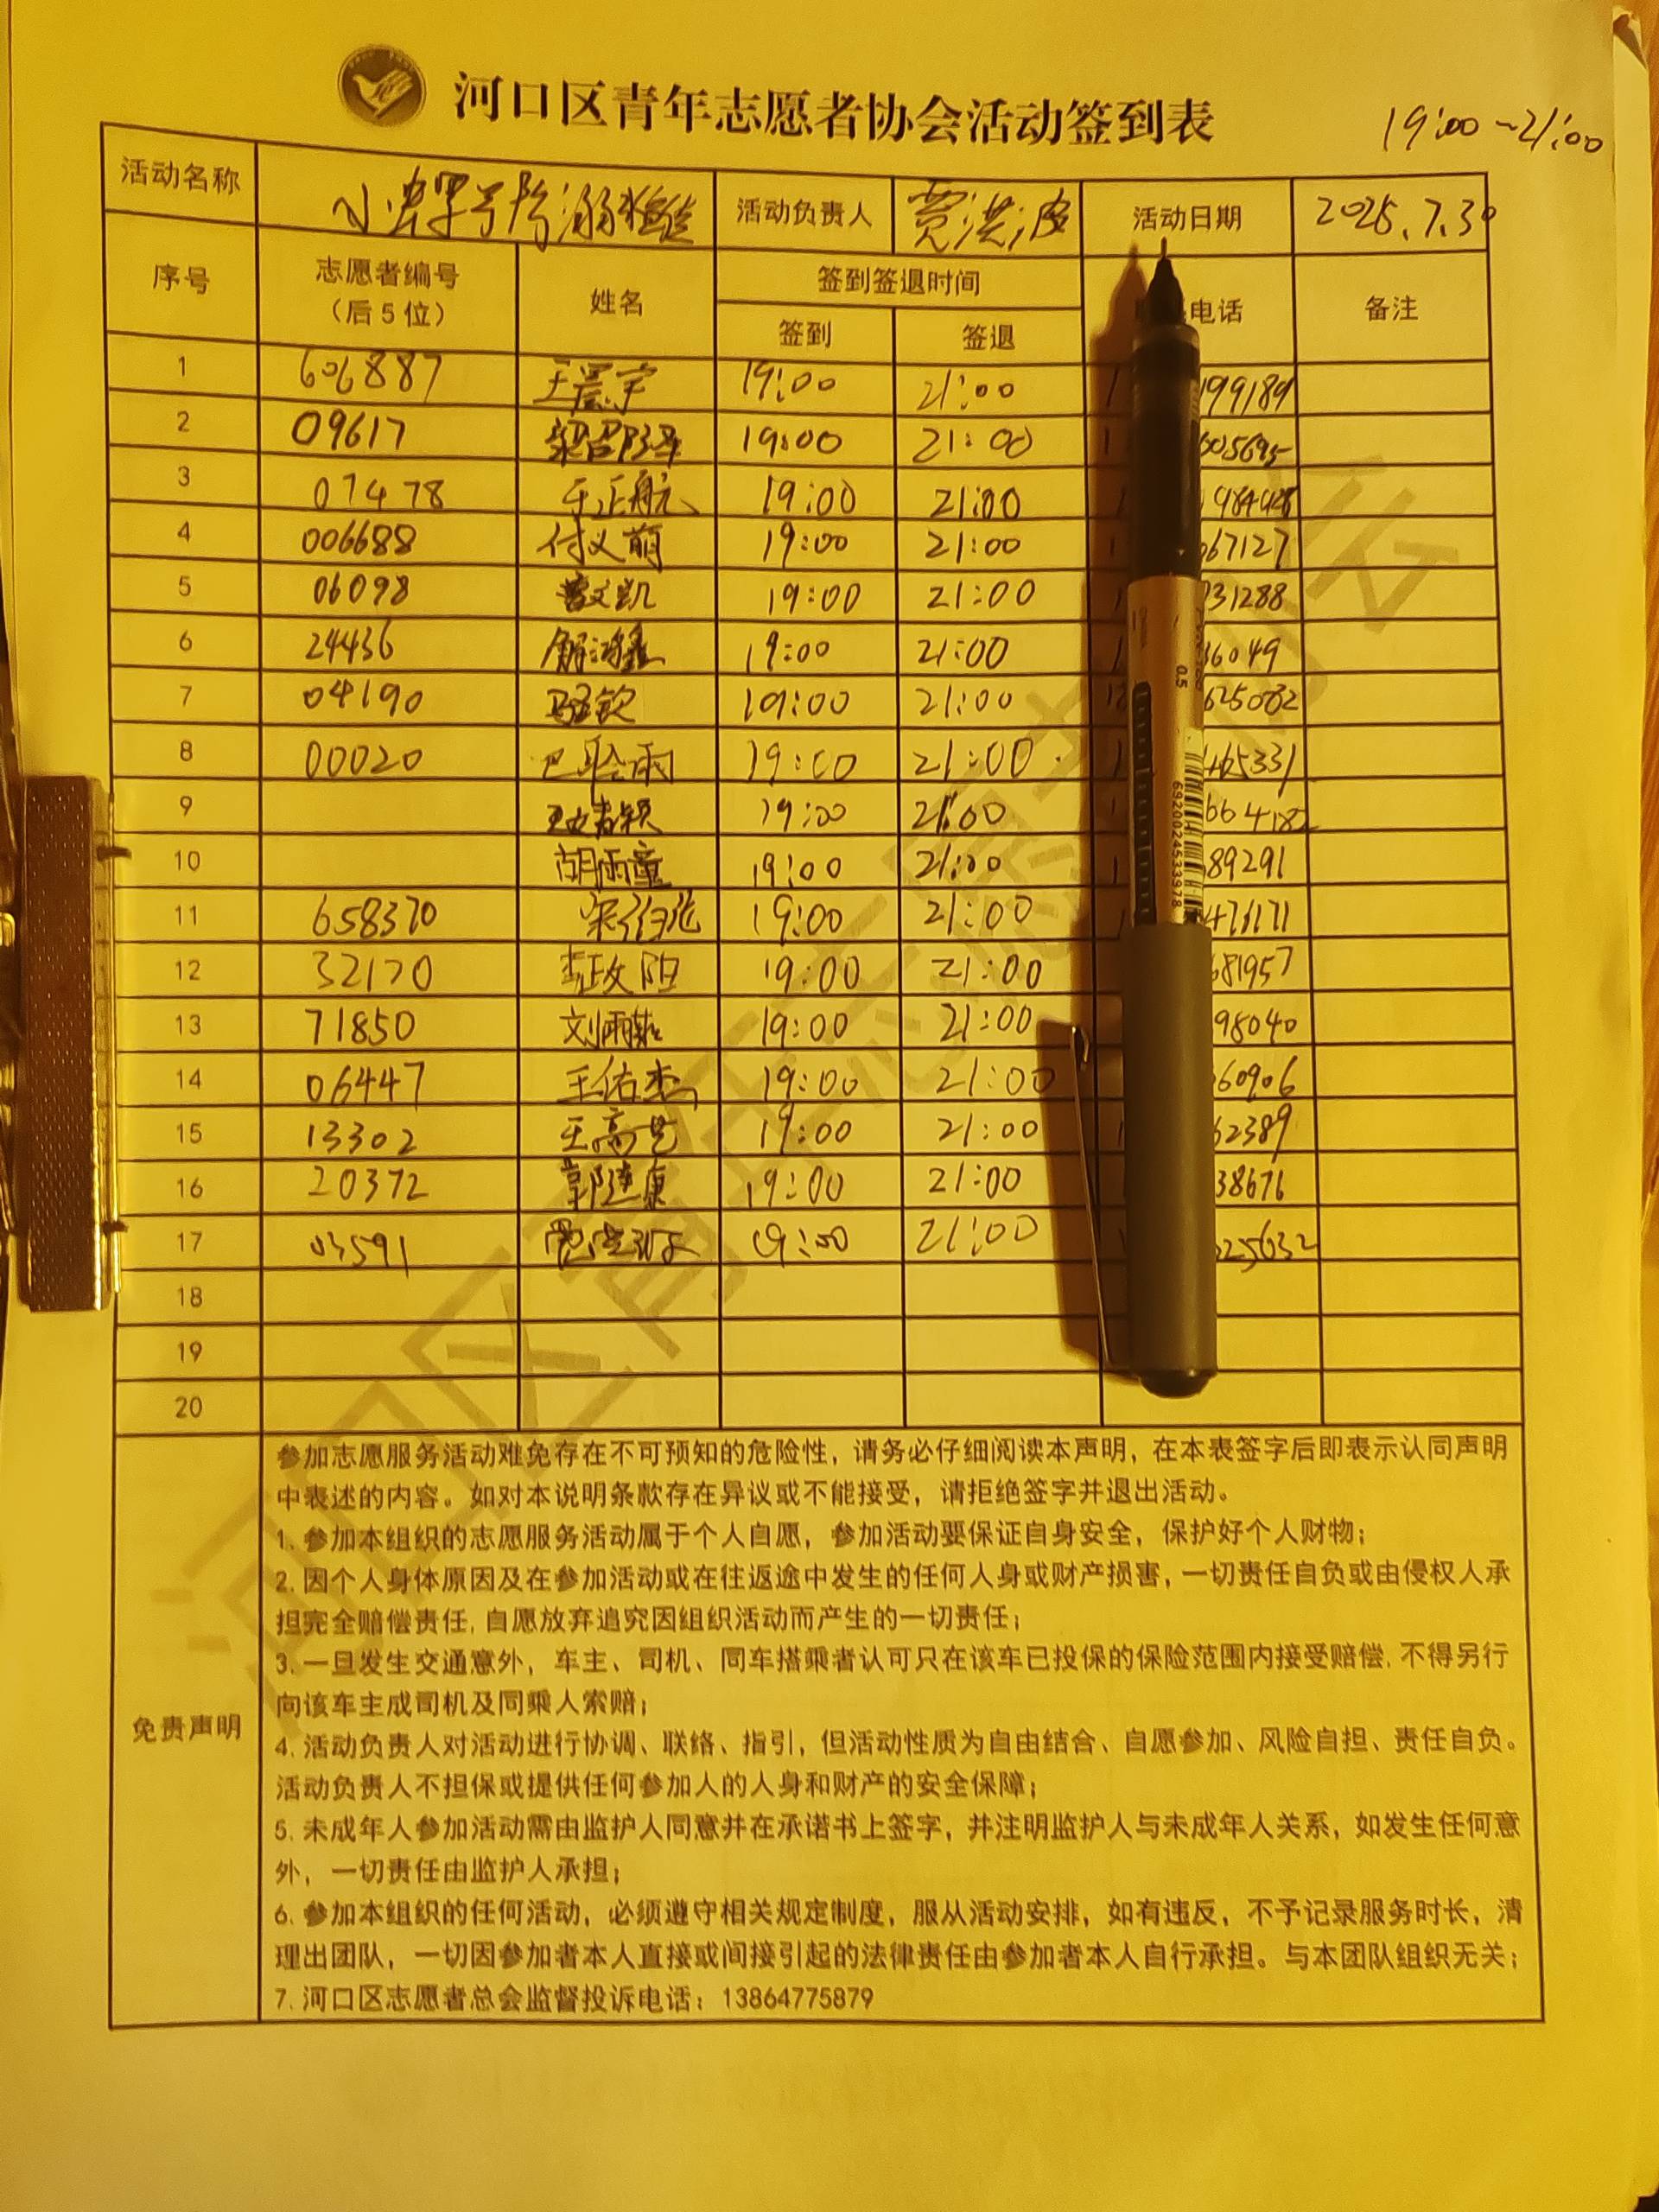 河口区青年志愿者协会活动签到表
19:00~21:00
活动名称 防溺 活动负责人 贾洪波 活动日期 2025.7.30
序号 志愿者编号（后5位） 姓名 签到签退时间 电话 备注
签到 签退
1 606887 王 宇 19:00 21:00 199189
2 09617 19:00 21:00 005695
3 07478 于正航 19:00 21:00
4 006688 付义萌 19:00 21:00 067127
5 06098 曹文凯 19:00 21:00 731288
6 24436 解鸿鑫 19:00 21:00 36049
7 04190 19:00 21:00 625082
8 00020 巴聆雨 19:00 21:00 465331
9 19:00 21:00 664182
10 胡雨童 19:00 21:00 89291
11 658370 19:00 21:00 471171
12 32170 李政阳 19:00 21:00 681957
13 71850 19:00 21:00 98040
14 06447 王佑杰 19:00 21:00 60906
15 13302 19:00 21:00 62389
16 20372 郭建康 19:00 21:00 38676
17 03591 19:00 21:00 225632
18
19
20
免责声明
参加志愿服务活动难免存在不可预知的危险性，请务必仔细阅读本声明，在本表签字后即表示认同声明
中表述的内容。如对本说明条款存在异议或不能接受，请拒绝签字并退出活动。
1. 参加本组织的志愿服务活动属于个人自愿，参加活动要保证自身安全，保护好个人财物；
2. 因个人身体原因及在参加活动或在往返途中发生的任何人身或财产损害，一切责任自负或由侵权人承
担完全赔偿责任, 自愿放弃追究因组织活动而产生的一切责任；
3. 一旦发生交通意外，车主、司机、同车搭乘者认可只在该车已投保的保险范围内接受赔偿, 不得另行
向该车主成司机及同乘人索赔；
4. 活动负责人对活动进行协调、联络、指引，但活动性质为自由结合、自愿参加、风险自担、责任自负。
活动负责人不担保或提供任何参加人的人身和财产的安全保障；
5. 未成年人参加活动需由监护人同意并在承诺书上签字，并注明监护人与未成年人关系，如发生任何意
外，一切责任由监护人承担；
6. 参加本组织的任何活动，必须遵守相关规定制度，服从活动安排，如有违反，不予记录服务时长，清
理出团队，一切因参加者本人直接或间接引起的法律责任由参加者本人自行承担。与本团队组织无关；
7. 河口区志愿者总会监督投诉电话：13864775879
0.5
6920024533978
河口区青年志愿者协会